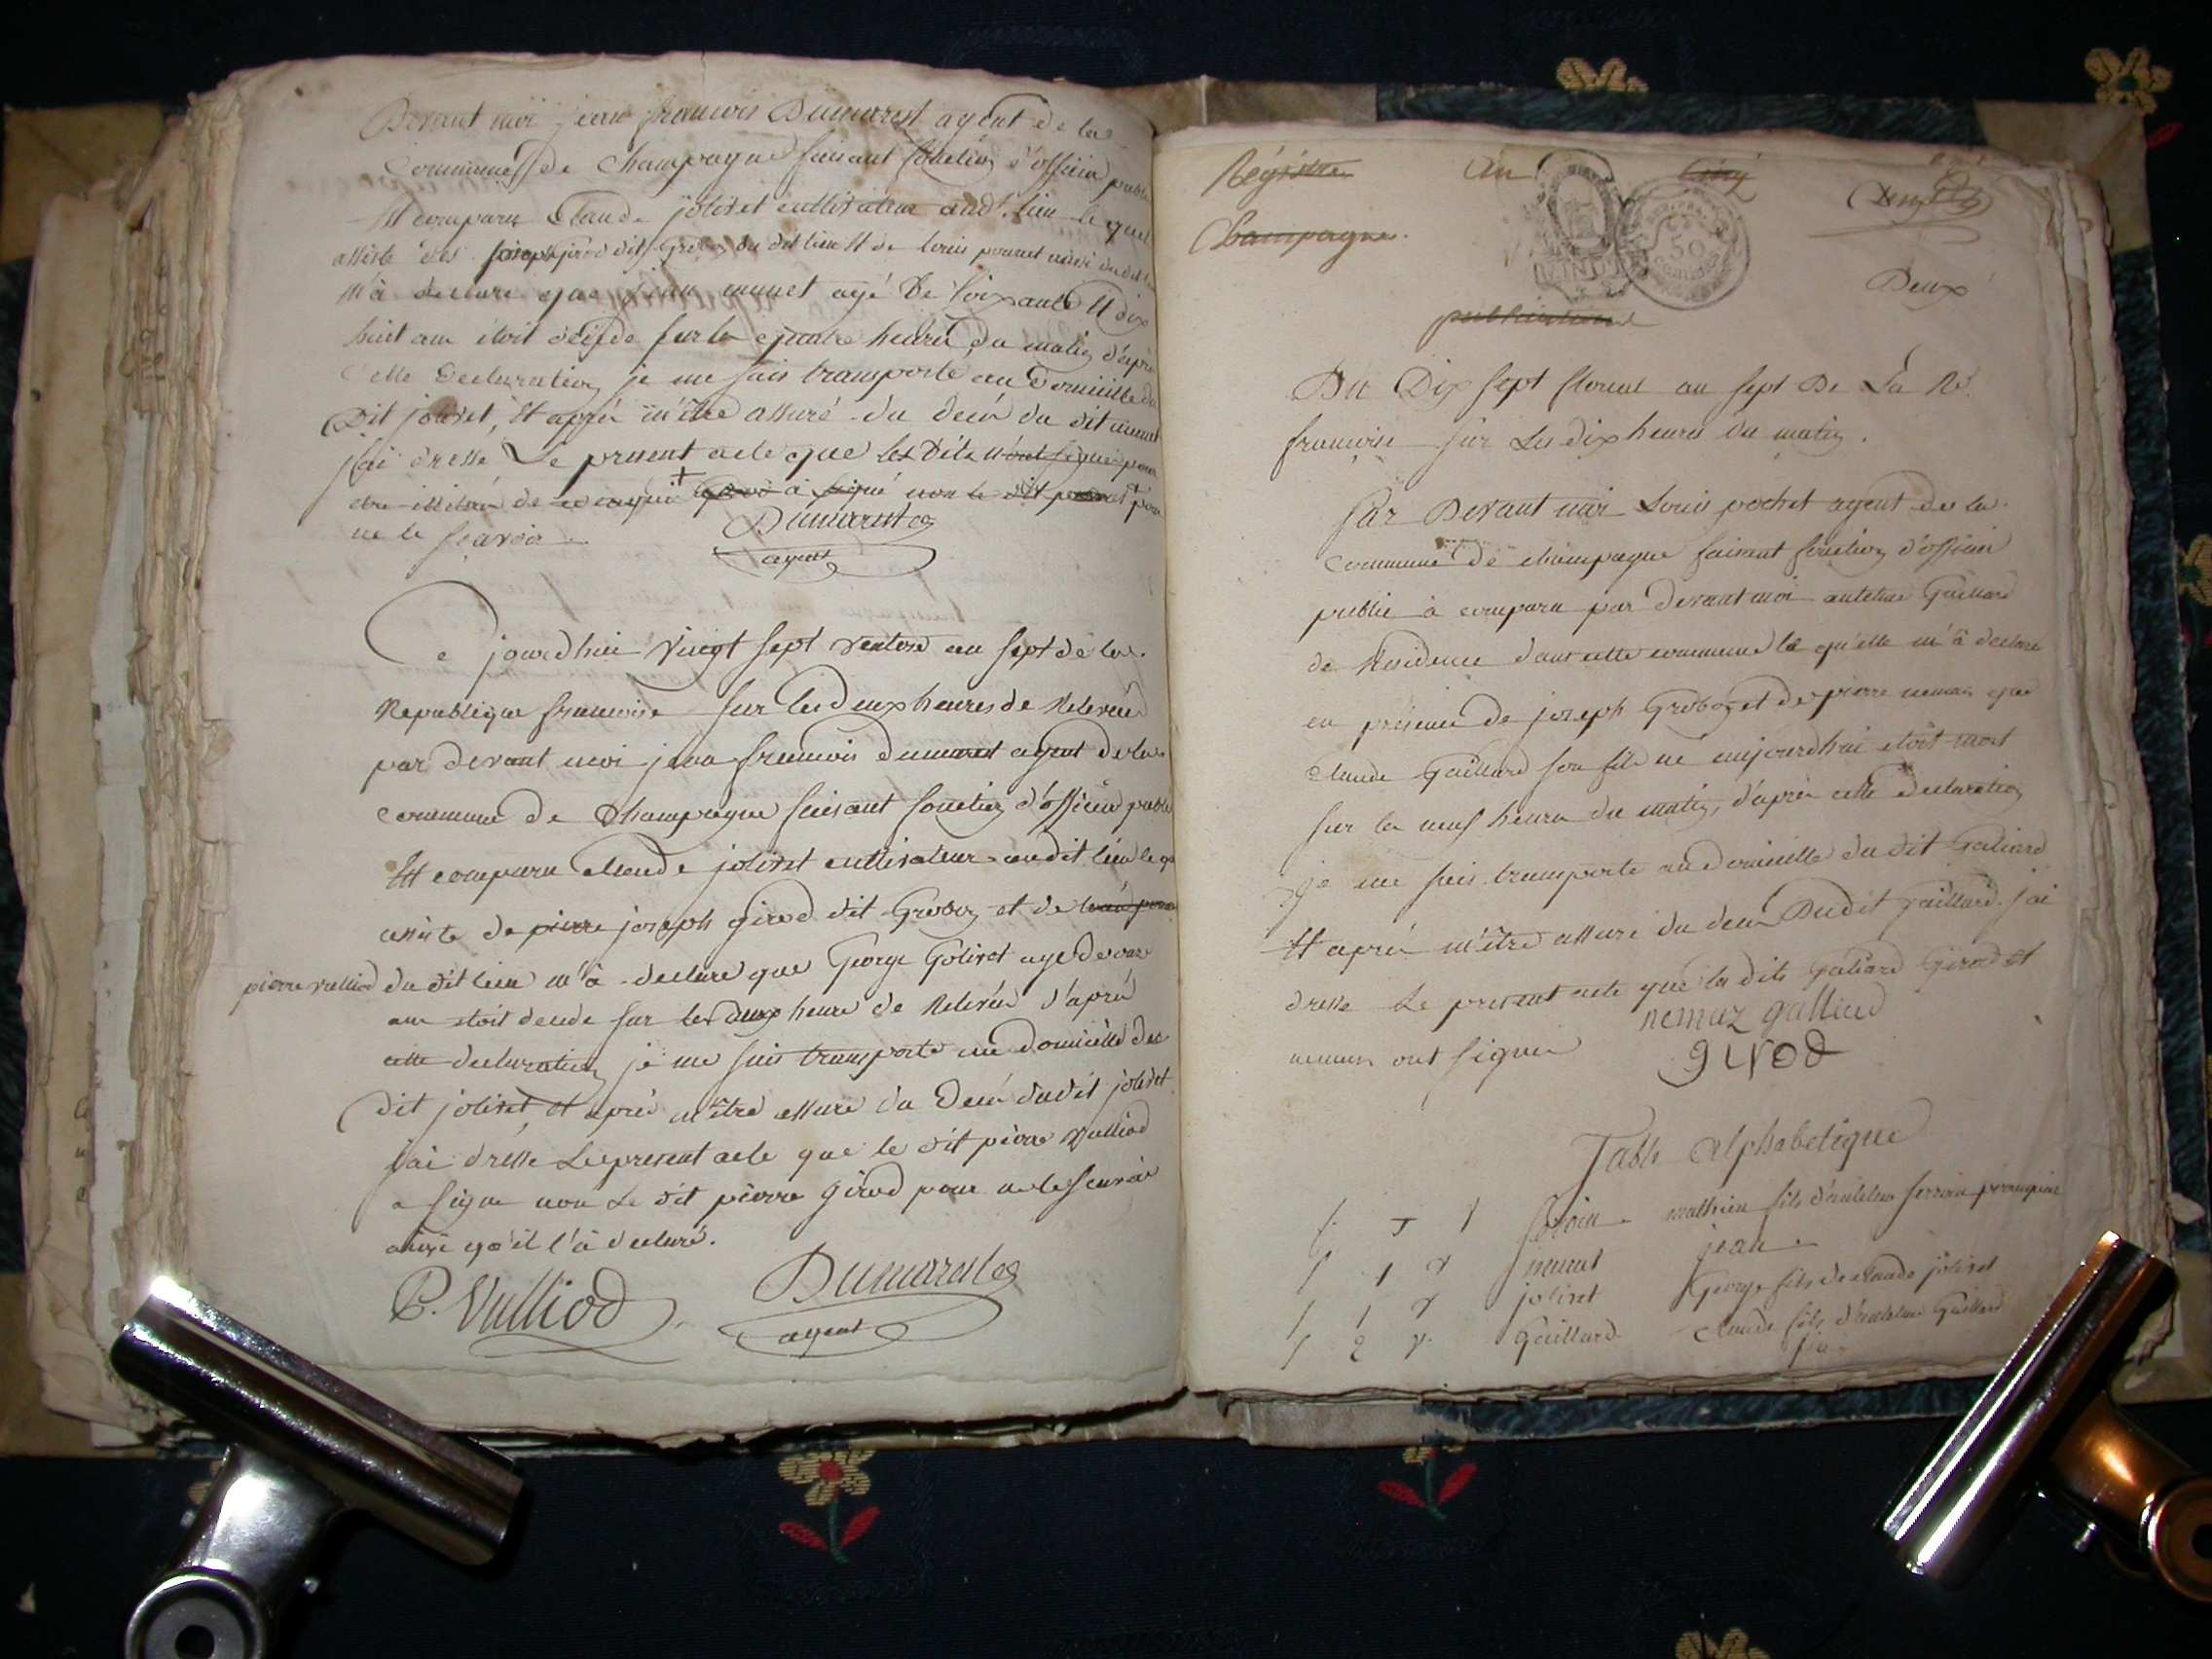 Devant moi jean francois Dumarest agent de la
Commune de Champagne faisant fonction d'officier public
Est comparu Claude joliret cultivateur audt. lieu le quel
assisté des joseph girod dit Groboz du dit lieu et de louis pourret aussi du dit lieu
M'à declaré que jean munet agé de soixante et dix
huit ans étoit décéde sur les quatre heures du matin d'après
Cette Declaration je me suis transporté au domicille du
Dit joliret, Et après m'être assuré du decés du dit munet
j'ai dressé Le present acte que les dits n'ont signé pour
etre illitérés de ce enquis girod à signé non le dit pourret pour
ne le scavoir
Dumarest
agent
Ce jourdhui vingt sept ventose an sept de la
Republique francoise sur les deux heures de Relevée
par devant moi jean francois dumarest agent de la
commune de Champagne faisant fonction d'officier public
Est comparu claude joliret cultivateur audit lieu le quel
assisté de pierre joseph girod dit Groboz et de
pierre vulliod du dit lieu m'à declaré que George Goliret agé de onze
ans etoit decedé sur les deux heure de Relevée d'après
cette declaration je me suis transporté au domicille du
dit joliret, et après m'être assuré du decés dudit joliret
j'ai dressé Le present acte que le dit pierre vulliod
a signé non Le dit pierre girod pour ne le scavoir
ainsi qu'il l'à declaré.
P. Vulliod Dumarest
agent
Régistre An Cinq
Champagne.
50
Deux
publications
Du Dix sept floreal an sept De La Ré.
francoise sur Les dix heures du matin.
Par Devant moi Louis pochet agent de la
Commune de champagne faisant fonction d'officier
public à comparu par devant moi antelme Gaillard
de Residence dans cette commune le qu'elle m'à declaré
en présence de joseph Groboz et de pierre nemoz que
Claude Gaillard son fils né aujourdhui etoit mort
sur les neuf heures du matin, d'après cette declaration
je me suis transporté au domicille du dit Galiard
Et après m'être assuré du decés Dudit Gaillard j'ai
dressé Le present acte que les dits galiard Girod et
nemoz galliard
nemoz ont signé girod
Table alphabetique
mathieu fils d'antelme
munet jean
1 1 joliret George fils de claude joliret
2 Gaillard Claude fils d'antelme Gaillard